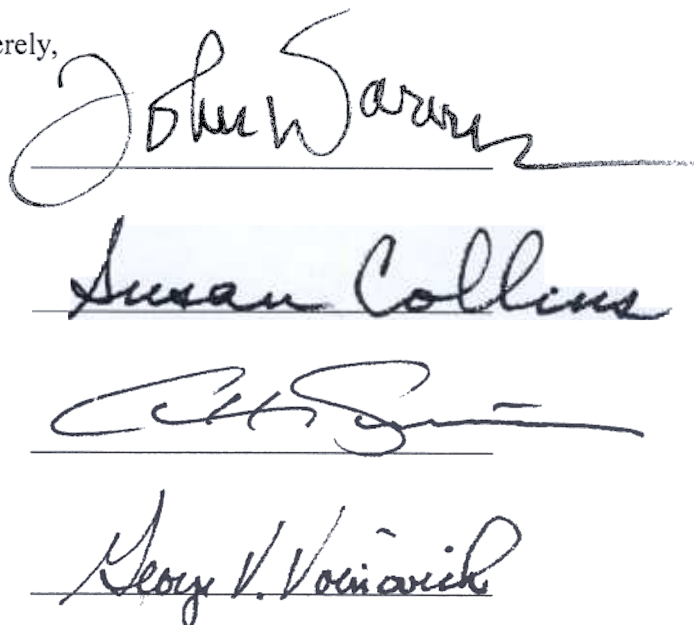 erely,
John Warner
Susan Collins
George V. Voinovich